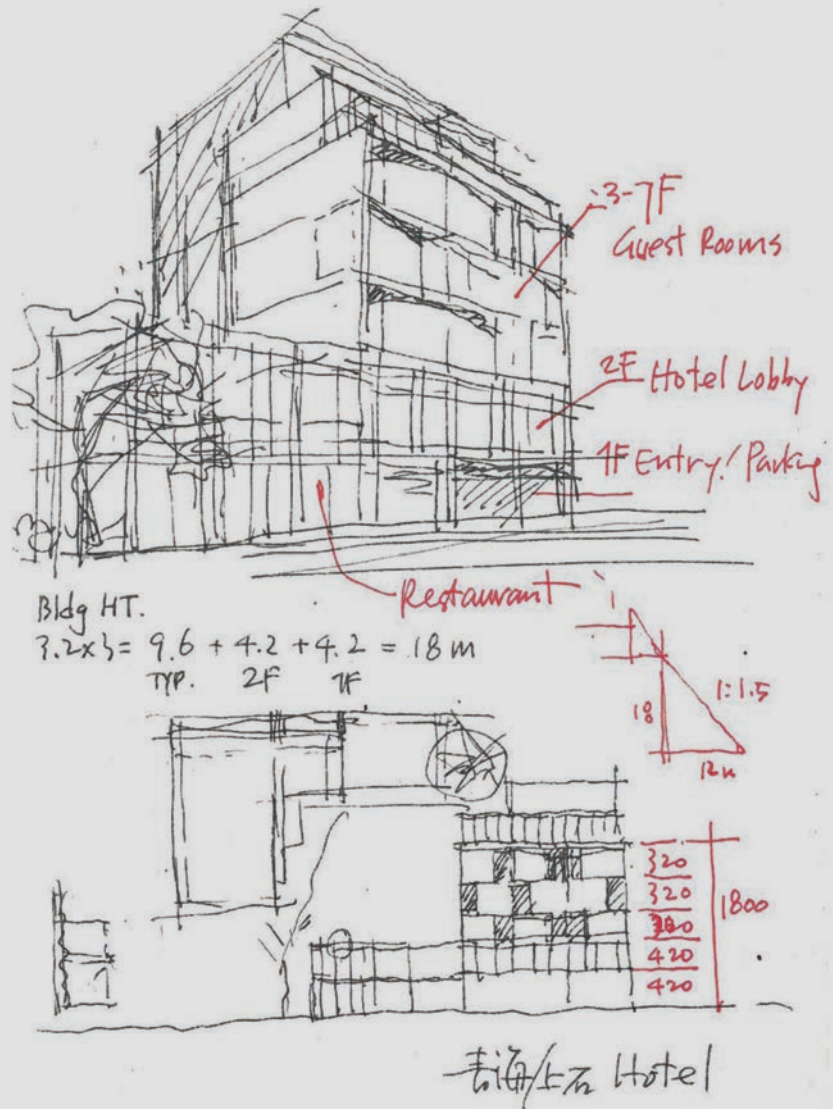 3-7F
Guest Rooms
2F Hotel Lobby
1F Entry/Parking
Restaurant
Bldg HT.
3.2x3= 9.6 + 4.2 + 4.2 = 18 m
TYP. 2F 1F
1
18
1:1.5
12m
320
320
320
420
420
1800
Hotel